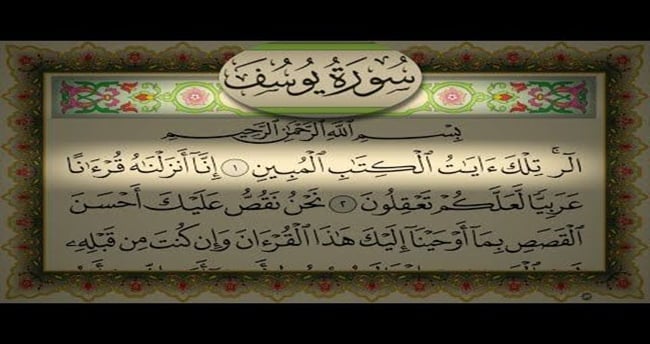 سُورَةُ يُوسُفَ
بِسْمِ اللَّهِ الرَّحْمَٰنِ الرَّحِيمِ
الٓرۚ تِلْكَ ءَايَٰتُ ٱلْكِتَٰبِ ٱلْمُبِينِ ١ إِنَّآ أَنزَلْنَٰهُ قُرْءَٰنًا
عَرَبِيًّا لَّعَلَّكُمْ تَعْقِلُونَ ٢ نَحْنُ نَقُصُّ عَلَيْكَ أَحْسَنَ
ٱلْقَصَصِ بِمَآ أَوْحَيْنَآ إِلَيْكَ هَٰذَا ٱلْقُرْءَانَ وَإِن كُنتَ مِن قَبْلِهِۦ